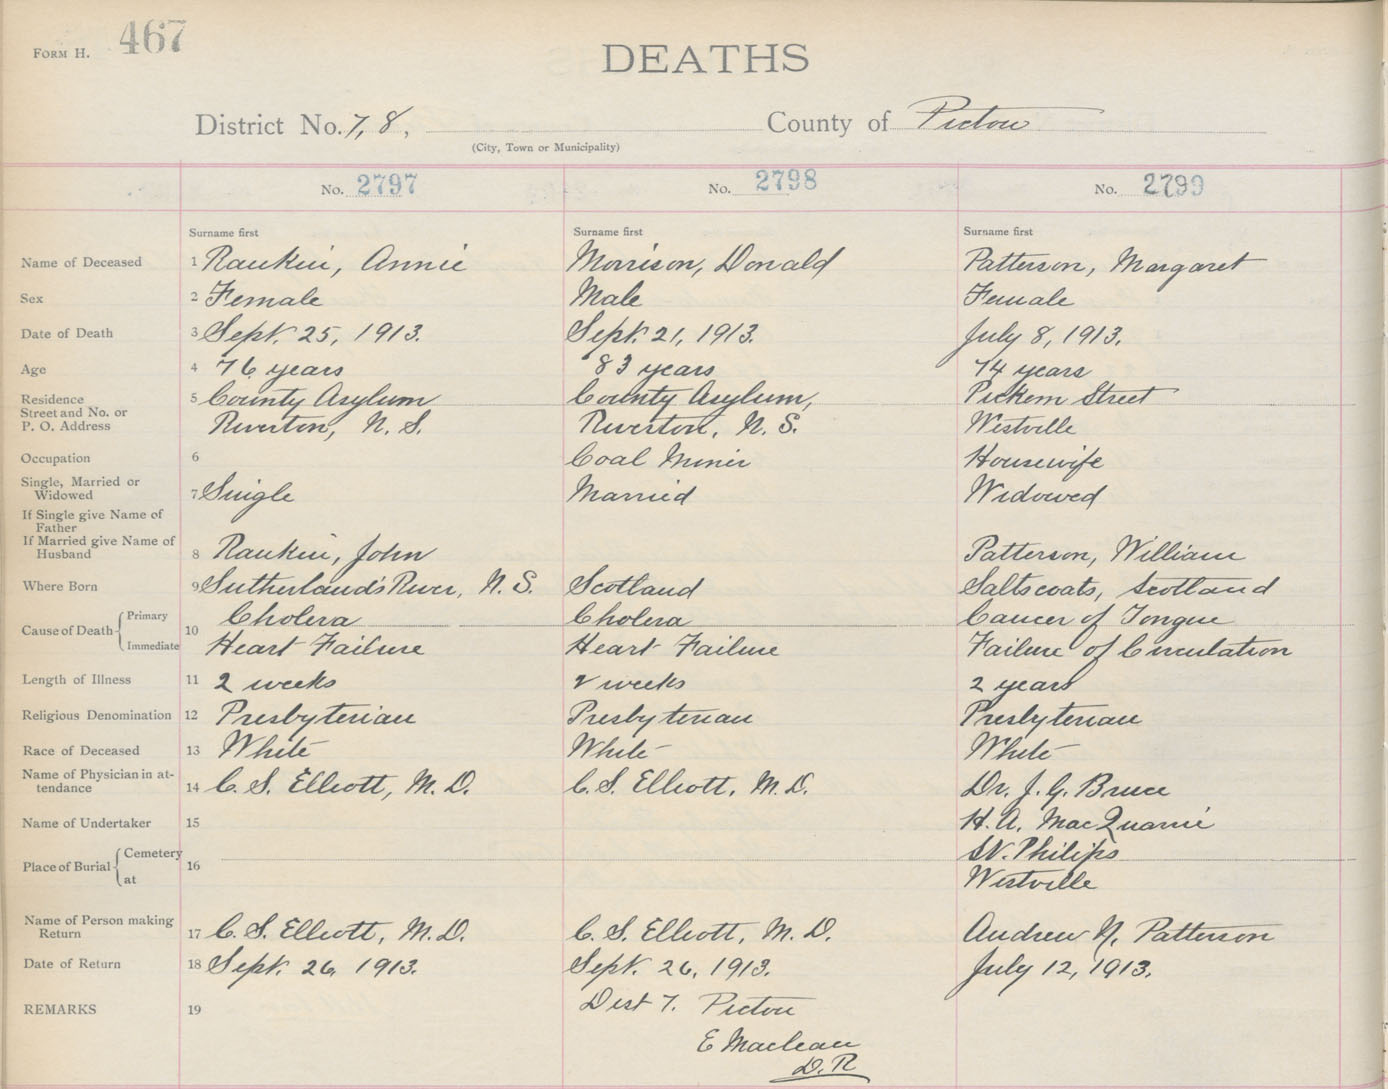 Form H. 467
DEATHS
District No. 7, 8, County of Pictou
(City, Town or Municipality)
No. 2797 No. 2798 No. 2799
Surname first Surname first Surname first
Name of Deceased 1 Rankin, Annie Morrison, Donald Patterson, Margaret
Sex 2 Female Male Female
Date of Death 3 Sept. 25, 1913. Sept. 21, 1913. July 8, 1913.
Age 4 76 years 83 years 74 years
Residence 5 County Asylum County Asylum, Pickom Street
Street and No. or
P. O. Address Riverton, N. S. Riverton, N. S. Westville
Occupation 6 Coal Miner Housewife
Single, Married or
Widowed 7 Single Married Widowed
If Single give Name of
Father
If Married give Name of
Husband 8 Rankin, John Patterson, William
Where Born 9 Sutherland's River, N. S. Scotland Saltscoats, Scotland
Cause of Death Primary 10 Cholera Cholera Cancer of Tongue
Immediate Heart Failure Heart Failure Failure of Circulation
Length of Illness 11 2 weeks 2 weeks 2 years
Religious Denomination 12 Presbyterian Presbyterian Presbyterian
Race of Deceased 13 White White White
Name of Physician in at-
tendance 14 C. S. Elliott, M. D. C. S. Elliott, M. D. Dr. J. G. Bruce
Name of Undertaker 15 H. A. MacQuarrie
Place of Burial Cemetery 16 St. Philips
at Westville
Name of Person making
Return 17 C. S. Elliott, M. D. C. S. Elliott, M. D. Andrew N. Patterson
Date of Return 18 Sept. 26, 1913. Sept. 26, 1913. July 12, 1913.
REMARKS 19 Dist 7. Pictou
E Maclean
D. R